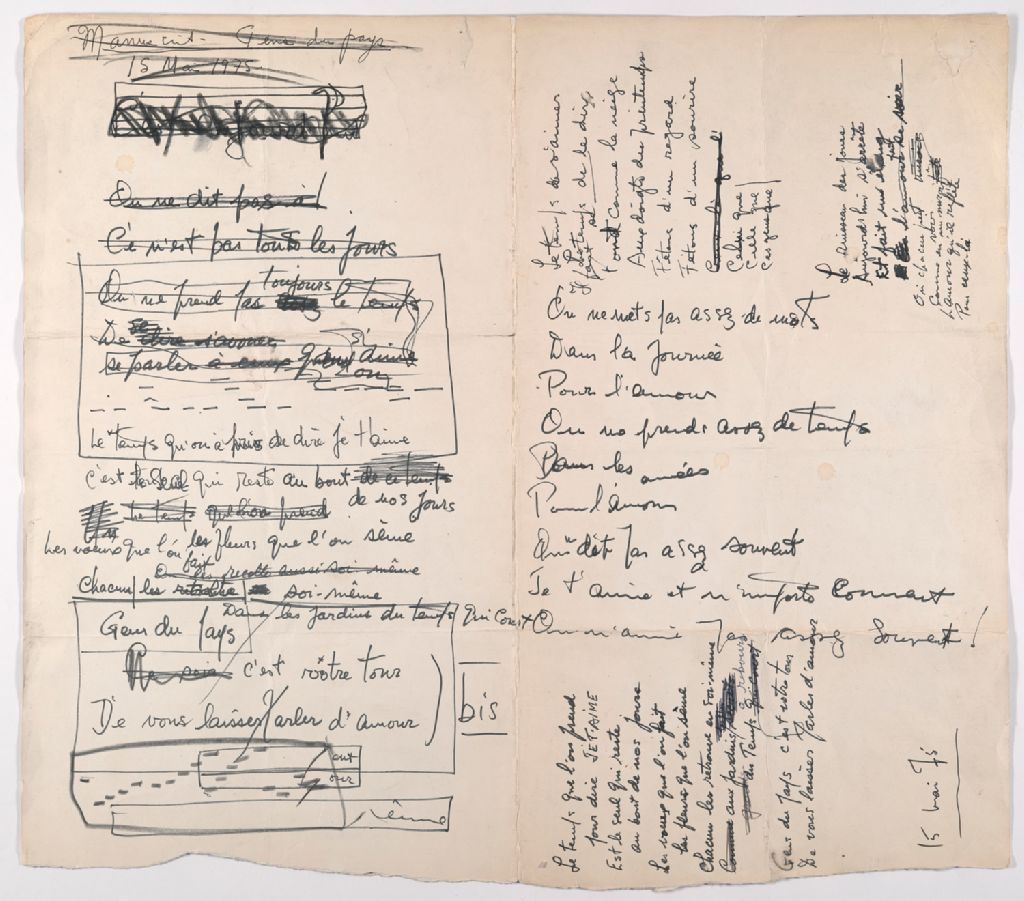 Manuscrit - Gens du pays
15 Mai 1975
On ne dit pas à
Ce n'est pas tous les jours
toujours
On ne prend pas assez le temps
De se dire s'avouer
se parler à
qu'on s'aime
Le temps qu'on a pris de dire je t'aime
C'est le seul qui reste au bout de ce temps
de nos jours
Le temps que l'on prend
Les voeux que l'on fait
les fleurs que l'on sème
On les récolte aussi soi-même
Chacun les retrouve soi-même
Dans les jardins du temps qui court
Gens du pays
c'est votre tour
De vous laisser parler d'amour
bis
sème
Le temps de s'aimer
Il faut le dire
Fond comme la neige
Aux doigts du printemps
Fêtons d'un regard
Fêtons d'un sourire
Celui que
Celle que
Ceux que
Le ruisseau des jours
Aujourd'hui s'arrête
Et fait un étang
Où chacun peut
Comme en un miroir
L'amour qu'il reflète
On ne mets pas assez de mots
Dans la journée
Pour l'amour
On ne prend assez de temps
Dans les années
Pour l'amour
On dit pas assez souvent
Je t'aime et n'importe comment
On n'aime pas assez souvent !
Le temps que l'on prend
pour dire JE T'AIME
Est le seul qui reste
au bout de nos jours
Les voeux que l'on fait
les fleurs que l'on sème
Chacun les retrouve en soi-même
Comme aux jardins
du temps qui court
Gens du pays c'est votre tour
De vous laisser parler d'amour
15 mai 75